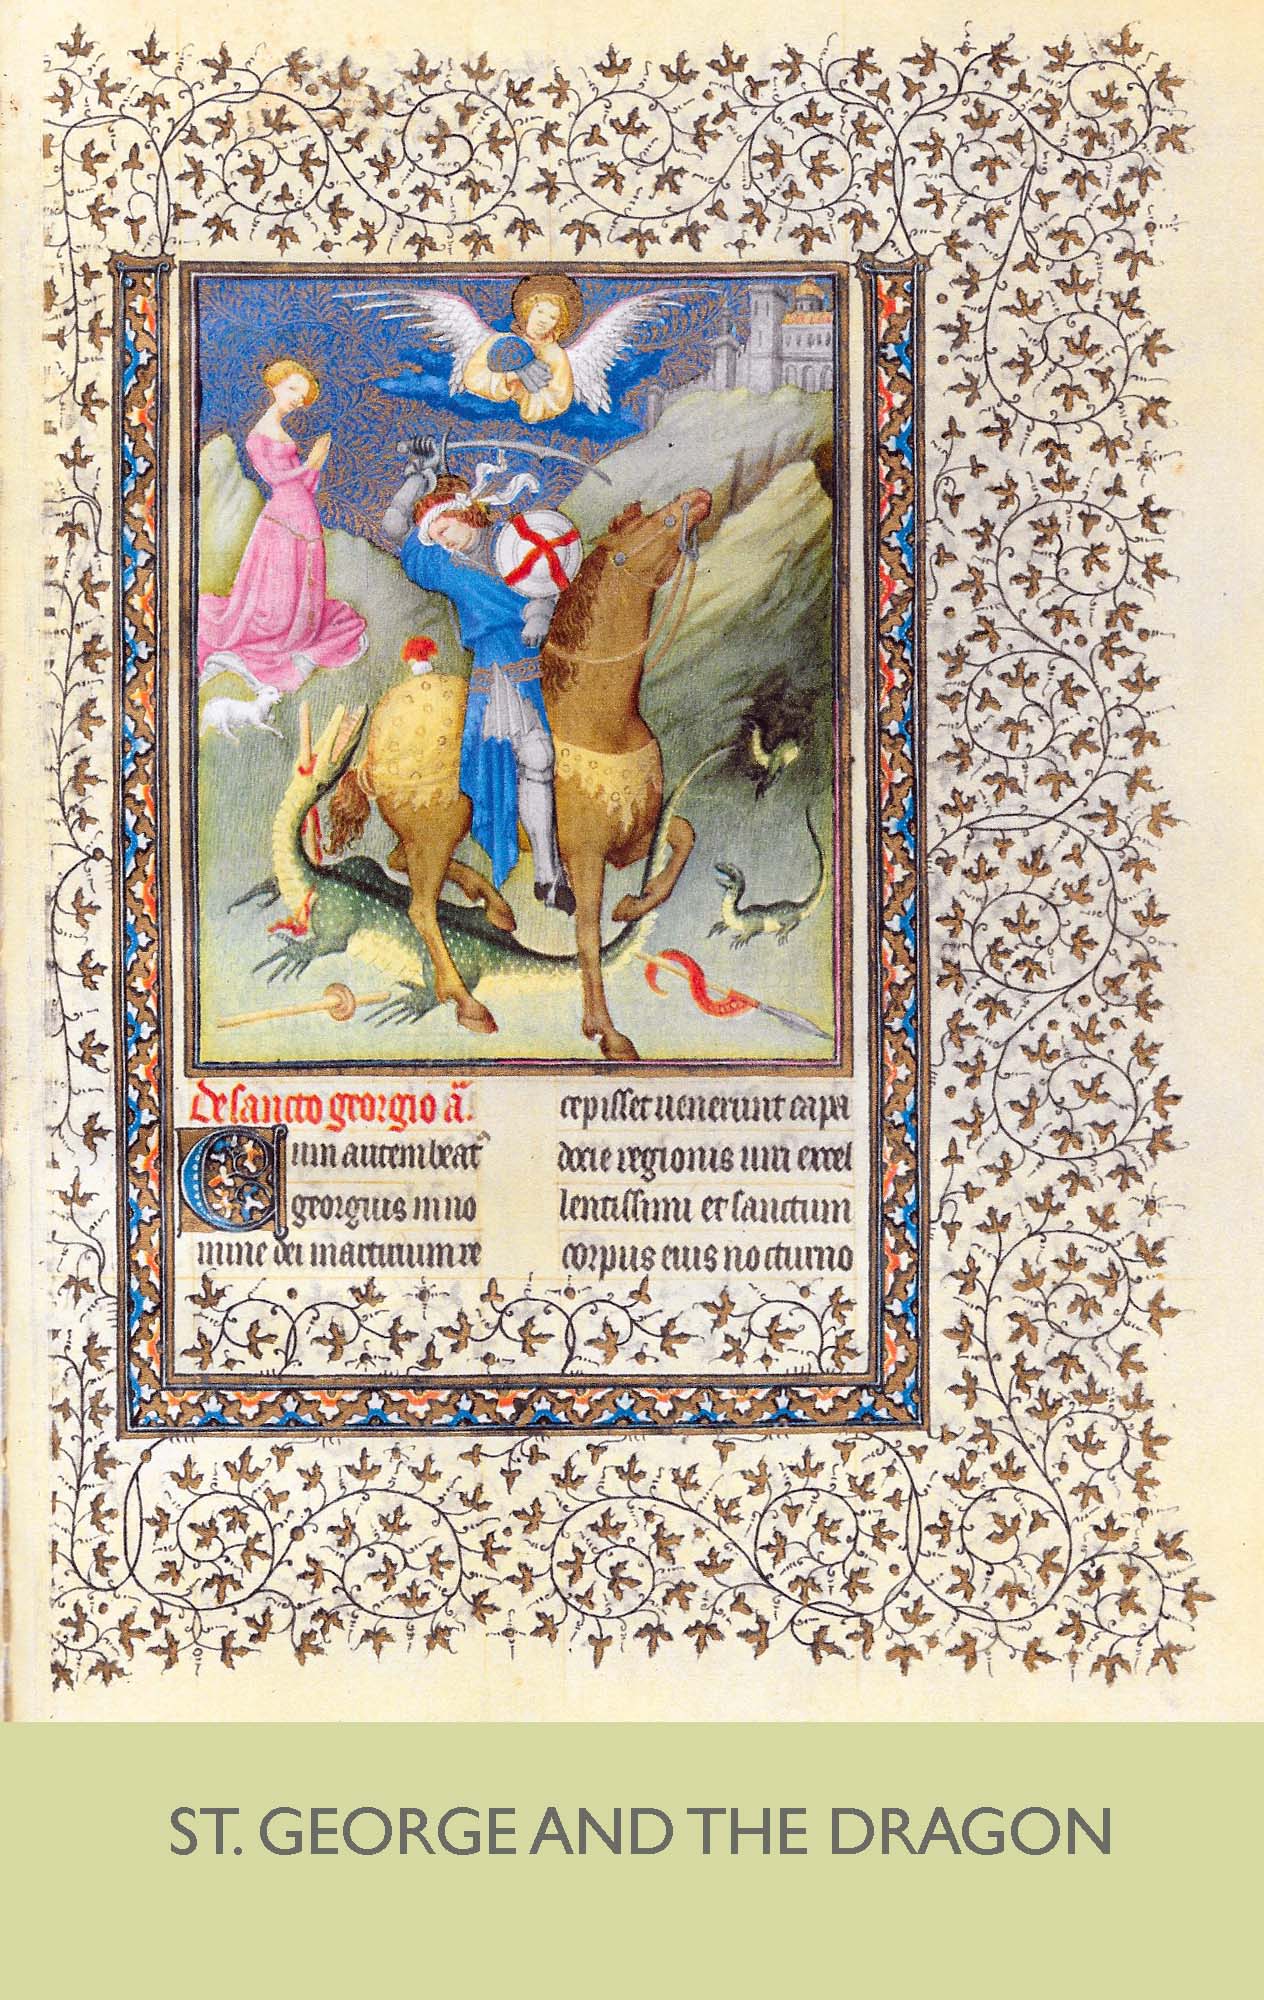 De sancto georgio a͞.
Cum autem beat⁹
georgius in no
mine dei martirium re
cepisset uenerunt capa
docie regionis uiri excel
lentissimi et sanctum
corpus eius nocturno
ST. GEORGE AND THE DRAGON